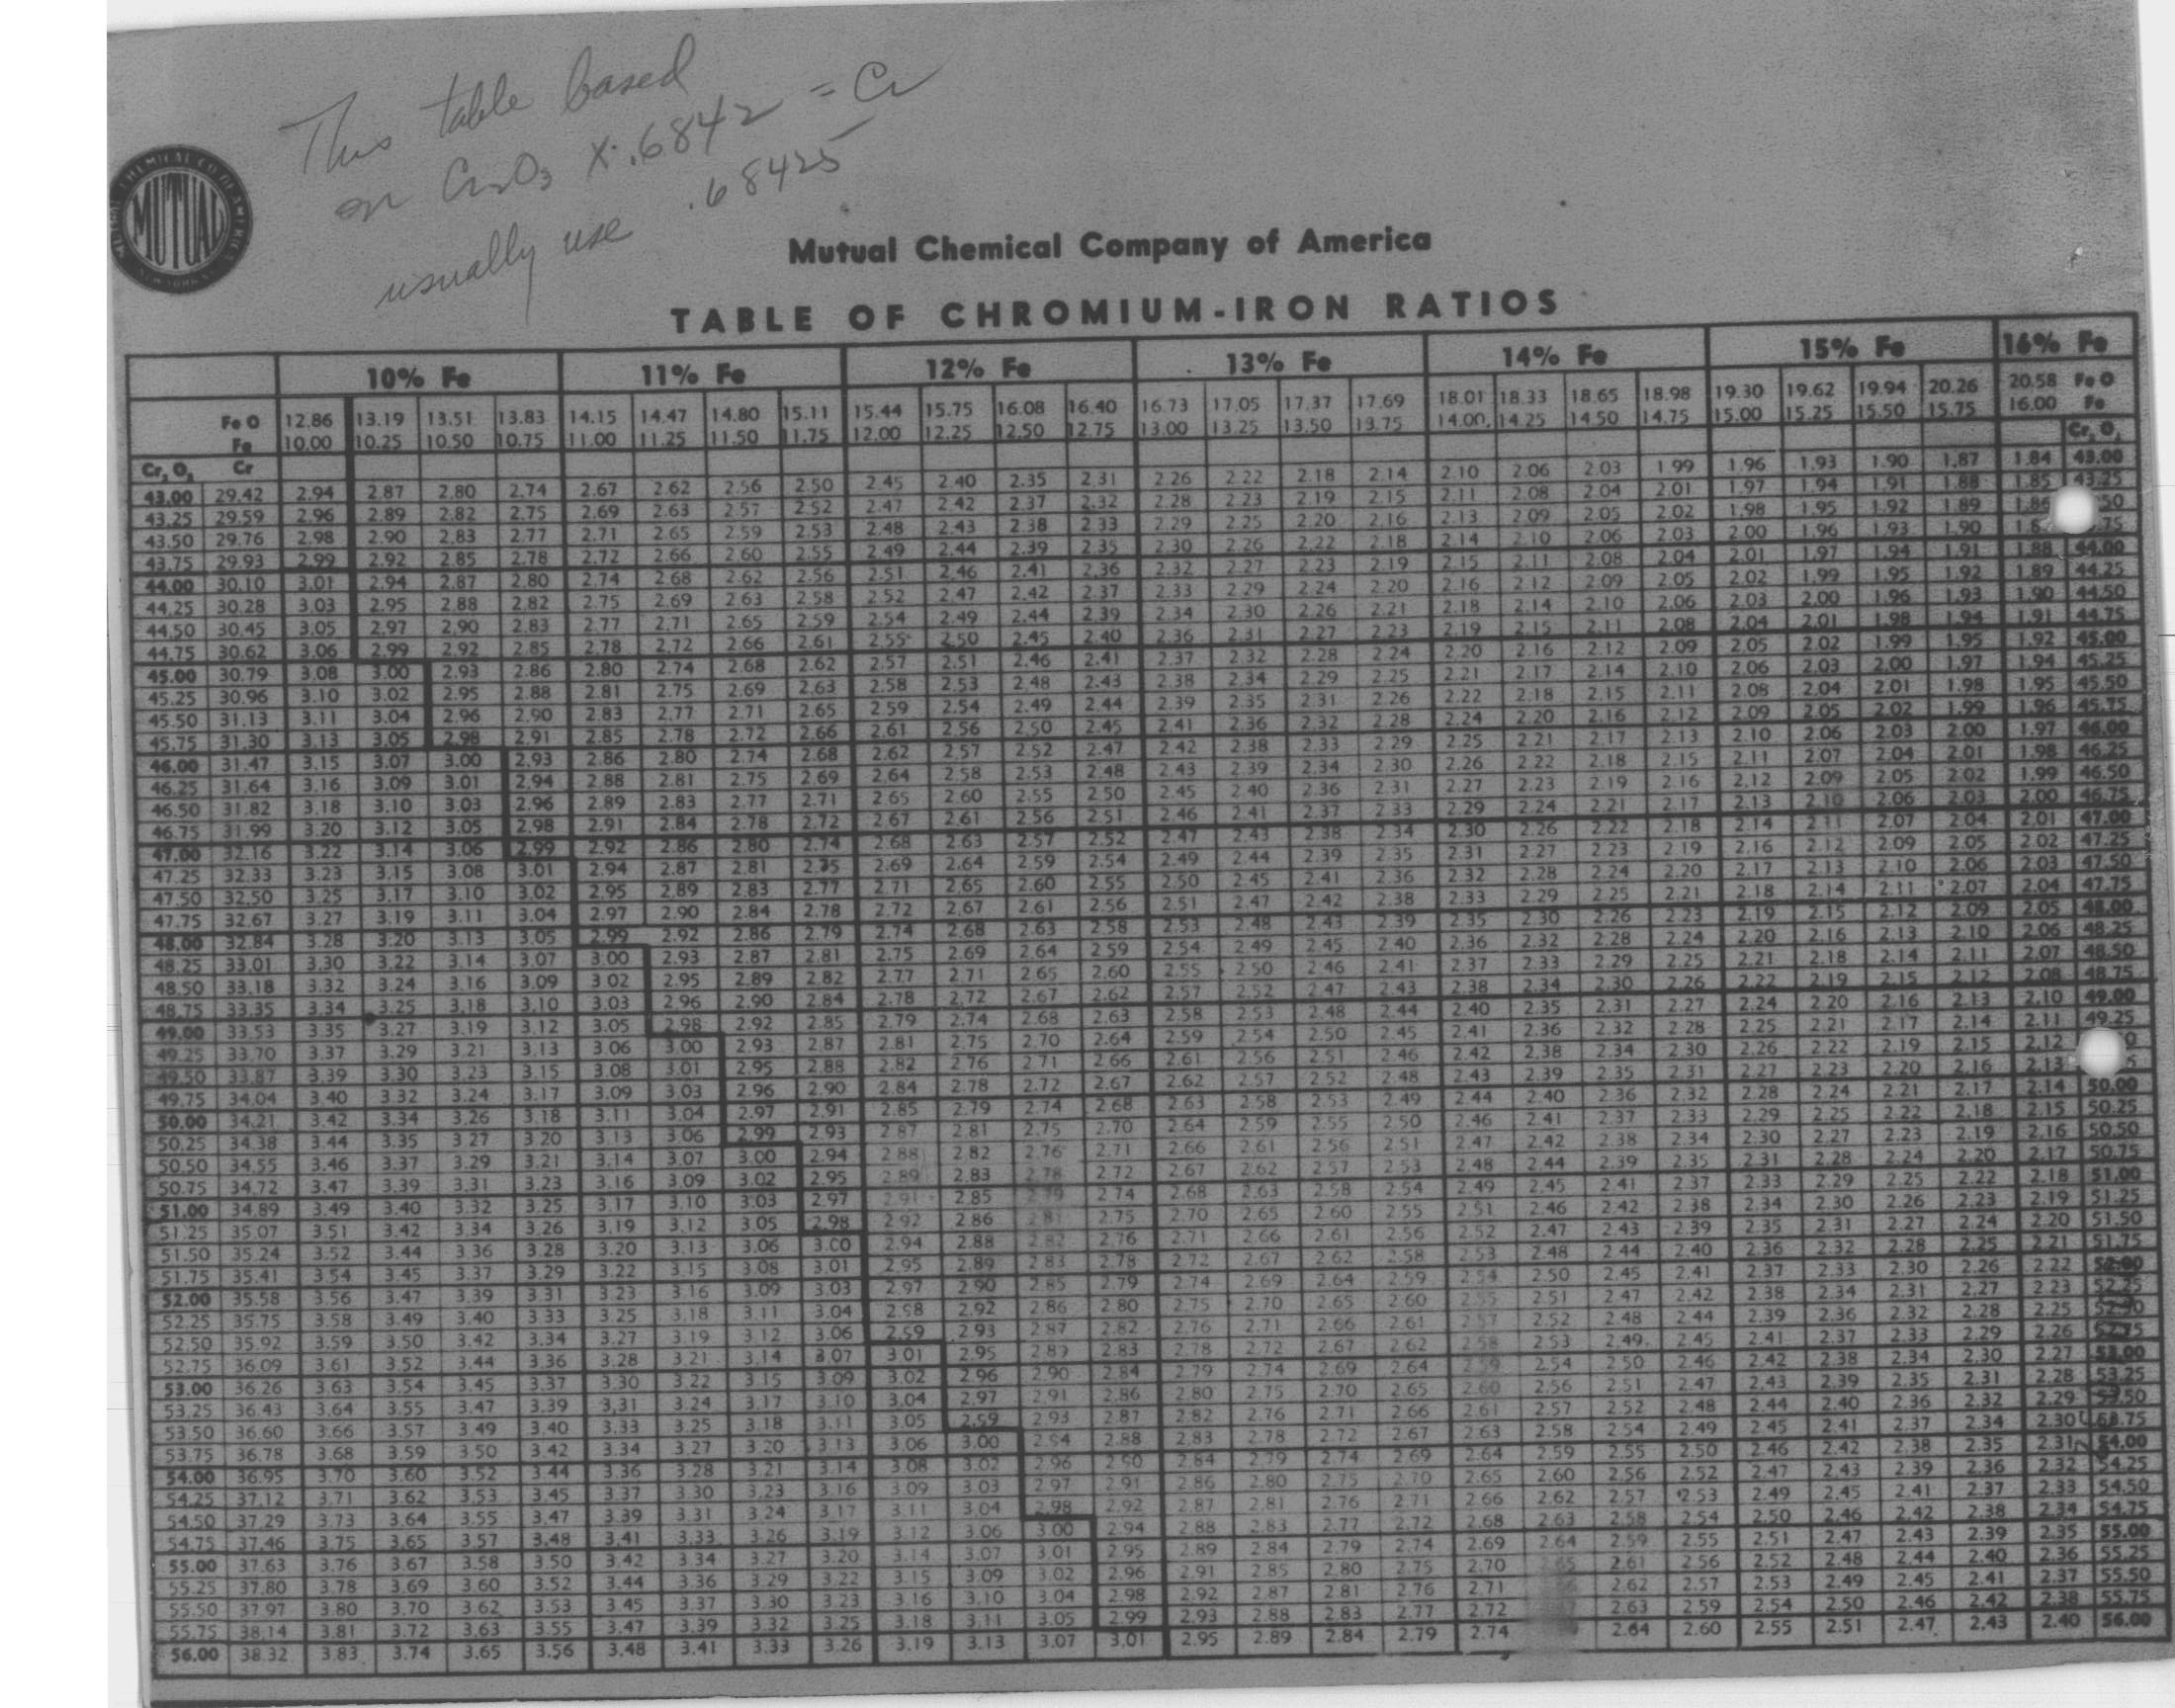 This table based
on Cr₂O₃ X .6842 = Cr
usually use .68425
MUTUAL CHEMICAL CO OF AMERICA
MUTUAL
NEW YORK
Mutual Chemical Company of America
TABLE OF CHROMIUM-IRON RATIOS
10% Fe 11% Fe 12% Fe 13% Fe 14% Fe 15% Fe 16% Fe
Fe O 12.86 13.19 13.51 13.83 14.15 14.47 14.80 15.11 15.44 15.75 16.08 16.40 16.73 17.05 17.37 17.69 18.01 18.33 18.65 18.98 19.30 19.62 19.94 20.26 20.58 Fe O
Fe 10.00 10.25 10.50 10.75 11.00 11.25 11.50 11.75 12.00 12.25 12.50 12.75 13.00 13.25 13.50 13.75 14.00 14.25 14.50 14.75 15.00 15.25 15.50 15.75 16.00 Fe
Cr₂O₃ Cr Cr₂O₃
43.00 29.42 2.94 2.87 2.80 2.74 2.67 2.62 2.56 2.50 2.45 2.40 2.35 2.31 2.26 2.22 2.18 2.14 2.10 2.06 2.03 1.99 1.96 1.93 1.90 1.87 1.84 43.00
43.25 29.59 2.96 2.89 2.82 2.75 2.69 2.63 2.57 2.52 2.47 2.42 2.37 2.32 2.28 2.23 2.19 2.15 2.11 2.08 2.04 2.01 1.97 1.94 1.91 1.88 1.85 43.25
43.50 29.76 2.98 2.90 2.83 2.77 2.71 2.65 2.59 2.53 2.48 2.43 2.38 2.33 2.29 2.25 2.20 2.16 2.13 2.09 2.05 2.02 1.98 1.95 1.92 1.89 1.86 50
43.75 29.93 2.99 2.92 2.85 2.78 2.72 2.66 2.60 2.55 2.49 2.44 2.39 2.35 2.30 2.26 2.22 2.18 2.14 2.10 2.06 2.03 2.00 1.96 1.93 1.90 75
44.00 30.10 3.01 2.94 2.87 2.80 2.74 2.68 2.62 2.56 2.51 2.46 2.41 2.36 2.32 2.27 2.23 2.19 2.15 2.11 2.08 2.04 2.01 1.97 1.94 1.91 1.88 44.00
44.25 30.28 3.03 2.95 2.88 2.82 2.75 2.69 2.63 2.58 2.52 2.47 2.42 2.37 2.33 2.29 2.24 2.20 2.16 2.12 2.09 2.05 2.02 1.99 1.95 1.92 1.89 44.25
44.50 30.45 3.05 2.97 2.90 2.83 2.77 2.71 2.65 2.59 2.54 2.49 2.44 2.39 2.34 2.30 2.26 2.21 2.18 2.14 2.10 2.06 2.03 2.00 1.96 1.93 1.90 44.50
44.75 30.62 3.06 2.99 2.92 2.85 2.78 2.72 2.66 2.61 2.55 2.50 2.45 2.40 2.36 2.31 2.27 2.23 2.19 2.15 2.11 2.08 2.04 2.01 1.98 1.94 1.91 44.75
45.00 30.79 3.08 3.00 2.93 2.86 2.80 2.74 2.68 2.62 2.57 2.51 2.46 2.41 2.37 2.32 2.28 2.24 2.20 2.16 2.12 2.09 2.05 2.02 1.99 1.95 1.92 45.00
45.25 30.96 3.10 3.02 2.95 2.88 2.81 2.75 2.69 2.63 2.58 2.53 2.48 2.43 2.38 2.34 2.29 2.25 2.21 2.17 2.14 2.10 2.06 2.03 2.00 1.97 1.94 45.25
45.50 31.13 3.11 3.04 2.96 2.90 2.83 2.77 2.71 2.65 2.59 2.54 2.49 2.44 2.39 2.35 2.31 2.26 2.22 2.18 2.15 2.11 2.08 2.04 2.01 1.98 1.95 45.50
45.75 31.30 3.13 3.05 2.98 2.91 2.85 2.78 2.72 2.66 2.61 2.56 2.50 2.45 2.41 2.36 2.32 2.28 2.24 2.20 2.16 2.12 2.09 2.05 2.02 1.99 1.96 45.75
46.00 31.47 3.15 3.07 3.00 2.93 2.86 2.80 2.74 2.68 2.62 2.57 2.52 2.47 2.42 2.38 2.33 2.29 2.25 2.21 2.17 2.13 2.10 2.06 2.03 2.00 1.97 46.00
46.25 31.64 3.16 3.09 3.01 2.94 2.88 2.81 2.75 2.69 2.64 2.58 2.53 2.48 2.43 2.39 2.34 2.30 2.26 2.22 2.18 2.15 2.11 2.07 2.04 2.01 1.98 46.25
46.50 31.82 3.18 3.10 3.03 2.96 2.89 2.83 2.77 2.71 2.65 2.60 2.55 2.50 2.45 2.40 2.36 2.31 2.27 2.23 2.19 2.16 2.12 2.09 2.05 2.02 1.99 46.50
46.75 31.99 3.20 3.12 3.05 2.98 2.91 2.84 2.78 2.72 2.67 2.61 2.56 2.51 2.46 2.41 2.37 2.33 2.29 2.24 2.21 2.17 2.13 2.10 2.06 2.03 2.00 46.75
47.00 32.16 3.22 3.14 3.06 2.99 2.92 2.86 2.80 2.74 2.68 2.63 2.57 2.52 2.47 2.43 2.38 2.34 2.30 2.26 2.22 2.18 2.14 2.11 2.07 2.04 2.01 47.00
47.25 32.33 3.23 3.15 3.08 3.01 2.94 2.87 2.81 2.75 2.69 2.64 2.59 2.54 2.49 2.44 2.39 2.35 2.31 2.27 2.23 2.19 2.16 2.12 2.09 2.05 2.02 47.25
47.50 32.50 3.25 3.17 3.10 3.02 2.95 2.89 2.83 2.77 2.71 2.65 2.60 2.55 2.50 2.45 2.41 2.36 2.32 2.28 2.24 2.20 2.17 2.13 2.10 2.06 2.03 47.50
47.75 32.67 3.27 3.19 3.11 3.04 2.97 2.90 2.84 2.78 2.72 2.67 2.61 2.56 2.51 2.47 2.42 2.38 2.33 2.29 2.25 2.21 2.18 2.14 2.11 2.07 2.04 47.75
48.00 32.84 3.28 3.20 3.13 3.05 2.99 2.92 2.86 2.79 2.74 2.68 2.63 2.58 2.53 2.48 2.43 2.39 2.35 2.30 2.26 2.23 2.19 2.15 2.12 2.09 2.05 48.00
48.25 33.01 3.30 3.22 3.14 3.07 3.00 2.93 2.87 2.81 2.75 2.69 2.64 2.59 2.54 2.49 2.45 2.40 2.36 2.32 2.28 2.24 2.20 2.16 2.13 2.10 2.06 48.25
48.50 33.18 3.32 3.24 3.16 3.09 3.02 2.95 2.89 2.82 2.77 2.71 2.65 2.60 2.55 2.50 2.46 2.41 2.37 2.33 2.29 2.25 2.21 2.18 2.14 2.11 2.07 48.50
48.75 33.35 3.34 3.25 3.18 3.10 3.03 2.96 2.90 2.84 2.78 2.72 2.67 2.62 2.57 2.52 2.47 2.43 2.38 2.34 2.30 2.26 2.22 2.19 2.15 2.12 2.08 48.75
49.00 33.53 3.35 3.27 3.19 3.12 3.05 2.98 2.92 2.85 2.79 2.74 2.68 2.63 2.58 2.53 2.48 2.44 2.40 2.35 2.31 2.27 2.24 2.20 2.16 2.13 2.10 49.00
49.25 33.70 3.37 3.29 3.21 3.13 3.06 3.00 2.93 2.87 2.81 2.75 2.70 2.64 2.59 2.54 2.50 2.45 2.41 2.36 2.32 2.28 2.25 2.21 2.17 2.14 2.11 49.25
49.50 33.87 3.39 3.30 3.23 3.15 3.08 3.01 2.95 2.88 2.82 2.76 2.71 2.66 2.61 2.56 2.51 2.46 2.42 2.38 2.34 2.30 2.26 2.22 2.19 2.15 2.12 0
49.75 34.04 3.40 3.32 3.24 3.17 3.09 3.03 2.96 2.90 2.84 2.78 2.72 2.67 2.62 2.57 2.52 2.48 2.43 2.39 2.35 2.31 2.27 2.23 2.20 2.16 2.13 5
50.00 34.21 3.42 3.34 3.26 3.18 3.11 3.04 2.97 2.91 2.85 2.79 2.74 2.68 2.63 2.58 2.53 2.49 2.44 2.40 2.36 2.32 2.28 2.24 2.21 2.17 2.14 50.00
50.25 34.38 3.44 3.35 3.27 3.20 3.13 3.06 2.99 2.93 2.87 2.81 2.75 2.70 2.64 2.59 2.55 2.50 2.46 2.41 2.37 2.33 2.29 2.25 2.22 2.18 2.15 50.25
50.50 34.55 3.46 3.37 3.29 3.21 3.14 3.07 3.00 2.94 2.88 2.82 2.76 2.71 2.66 2.61 2.56 2.51 2.47 2.42 2.38 2.34 2.30 2.27 2.23 2.19 2.16 50.50
50.75 34.72 3.47 3.39 3.31 3.23 3.16 3.09 3.02 2.95 2.89 2.83 2.78 2.72 2.67 2.62 2.57 2.53 2.48 2.44 2.39 2.35 2.31 2.28 2.24 2.20 2.17 50.75
51.00 34.89 3.49 3.40 3.32 3.25 3.17 3.10 3.03 2.97 2.91 2.85 2.79 2.74 2.68 2.63 2.58 2.54 2.49 2.45 2.41 2.37 2.33 2.29 2.25 2.22 2.18 51.00
51.25 35.07 3.51 3.42 3.34 3.26 3.19 3.12 3.05 2.98 2.92 2.86 2.81 2.75 2.70 2.65 2.60 2.55 2.51 2.46 2.42 2.38 2.34 2.30 2.26 2.23 2.19 51.25
51.50 35.24 3.52 3.44 3.36 3.28 3.20 3.13 3.06 3.00 2.94 2.88 2.82 2.76 2.71 2.66 2.61 2.56 2.52 2.47 2.43 2.39 2.35 2.31 2.27 2.24 2.20 51.50
51.75 35.41 3.54 3.45 3.37 3.29 3.22 3.15 3.08 3.01 2.95 2.89 2.83 2.78 2.72 2.67 2.62 2.58 2.53 2.48 2.44 2.40 2.36 2.32 2.28 2.25 2.21 51.75
52.00 35.58 3.56 3.47 3.39 3.31 3.23 3.16 3.09 3.03 2.97 2.90 2.85 2.79 2.74 2.69 2.64 2.59 2.54 2.50 2.45 2.41 2.37 2.33 2.30 2.26 2.22 52.00
52.25 35.75 3.58 3.49 3.40 3.33 3.25 3.18 3.11 3.04 2.98 2.92 2.86 2.80 2.75 2.70 2.65 2.60 2.55 2.51 2.47 2.42 2.38 2.34 2.31 2.27 2.23 52.25
52.50 35.92 3.59 3.50 3.42 3.34 3.27 3.19 3.12 3.06 2.59 2.93 2.87 2.82 2.76 2.71 2.66 2.61 2.57 2.52 2.48 2.44 2.39 2.36 2.32 2.28 2.25 52.50
52.75 36.09 3.61 3.52 3.44 3.36 3.28 3.21 3.14 3.07 3.01 2.95 2.89 2.83 2.78 2.72 2.67 2.62 2.58 2.53 2.49 2.45 2.41 2.37 2.33 2.29 2.26 52.75
53.00 36.26 3.63 3.54 3.45 3.37 3.30 3.22 3.15 3.09 3.02 2.96 2.90 2.84 2.79 2.74 2.69 2.64 2.59 2.54 2.50 2.46 2.42 2.38 2.34 2.30 2.27 53.00
53.25 36.43 3.64 3.55 3.47 3.39 3.31 3.24 3.17 3.10 3.04 2.97 2.91 2.86 2.80 2.75 2.70 2.65 2.60 2.56 2.51 2.47 2.43 2.39 2.35 2.31 2.28 53.25
53.50 36.60 3.66 3.57 3.49 3.40 3.33 3.25 3.18 3.11 3.05 2.59 2.93 2.87 2.82 2.76 2.71 2.66 2.61 2.57 2.52 2.48 2.44 2.40 2.36 2.32 2.29 53.50
53.75 36.78 3.68 3.59 3.50 3.42 3.34 3.27 3.20 3.13 3.06 3.00 2.94 2.88 2.83 2.78 2.72 2.67 2.63 2.58 2.54 2.49 2.45 2.41 2.37 2.34 2.30 53.75
54.00 36.95 3.70 3.60 3.52 3.44 3.36 3.28 3.21 3.14 3.08 3.02 2.96 2.90 2.84 2.79 2.74 2.69 2.64 2.59 2.55 2.50 2.46 2.42 2.38 2.35 2.31 54.00
54.25 37.12 3.71 3.62 3.53 3.45 3.37 3.30 3.23 3.16 3.09 3.03 2.97 2.91 2.86 2.80 2.75 2.70 2.65 2.60 2.56 2.52 2.47 2.43 2.39 2.36 2.32 54.25
54.50 37.29 3.73 3.64 3.55 3.47 3.39 3.31 3.24 3.17 3.11 3.04 2.98 2.92 2.87 2.81 2.76 2.71 2.66 2.62 2.57 2.53 2.49 2.45 2.41 2.37 2.33 54.50
54.75 37.46 3.75 3.65 3.57 3.48 3.41 3.33 3.26 3.19 3.12 3.06 3.00 2.94 2.88 2.83 2.77 2.72 2.68 2.63 2.58 2.54 2.50 2.46 2.42 2.38 2.34 54.75
55.00 37.63 3.76 3.67 3.58 3.50 3.42 3.34 3.27 3.20 3.14 3.07 3.01 2.95 2.89 2.84 2.79 2.74 2.69 2.64 2.59 2.55 2.51 2.47 2.43 2.39 2.35 55.00
55.25 37.80 3.78 3.69 3.60 3.52 3.44 3.36 3.29 3.22 3.15 3.09 3.02 2.96 2.91 2.85 2.80 2.75 2.70 2.65 2.61 2.56 2.52 2.48 2.44 2.40 2.36 55.25
55.50 37.97 3.80 3.70 3.62 3.53 3.45 3.37 3.30 3.23 3.16 3.10 3.04 2.98 2.92 2.87 2.81 2.76 2.71 2.62 2.57 2.53 2.49 2.45 2.41 2.37 55.50
55.75 38.14 3.81 3.72 3.63 3.55 3.47 3.39 3.32 3.25 3.18 3.11 3.05 2.99 2.93 2.88 2.83 2.77 2.72 2.63 2.59 2.54 2.50 2.46 2.42 2.38 55.75
56.00 38.32 3.83 3.74 3.65 3.56 3.48 3.41 3.33 3.26 3.19 3.13 3.07 3.01 2.95 2.89 2.84 2.79 2.74 2.64 2.60 2.55 2.51 2.47 2.43 2.40 56.00